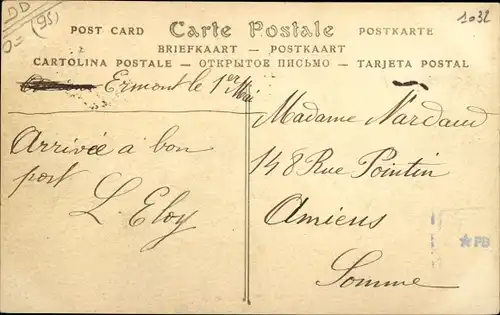 DD
(95)
1032
POST CARD Carte Postale POSTKARTE
BRIEFKAART — POSTKAART
CARTOLINA POSTALE — ОТКРЫТОЕ ПИСЬМО — TARJETA POSTAL
Ermont le 1er Mai
Arrivée à bon
port
L. Eloy
Madame Nardaud
148 Rue Pointin
Amiens
Somme
★PB